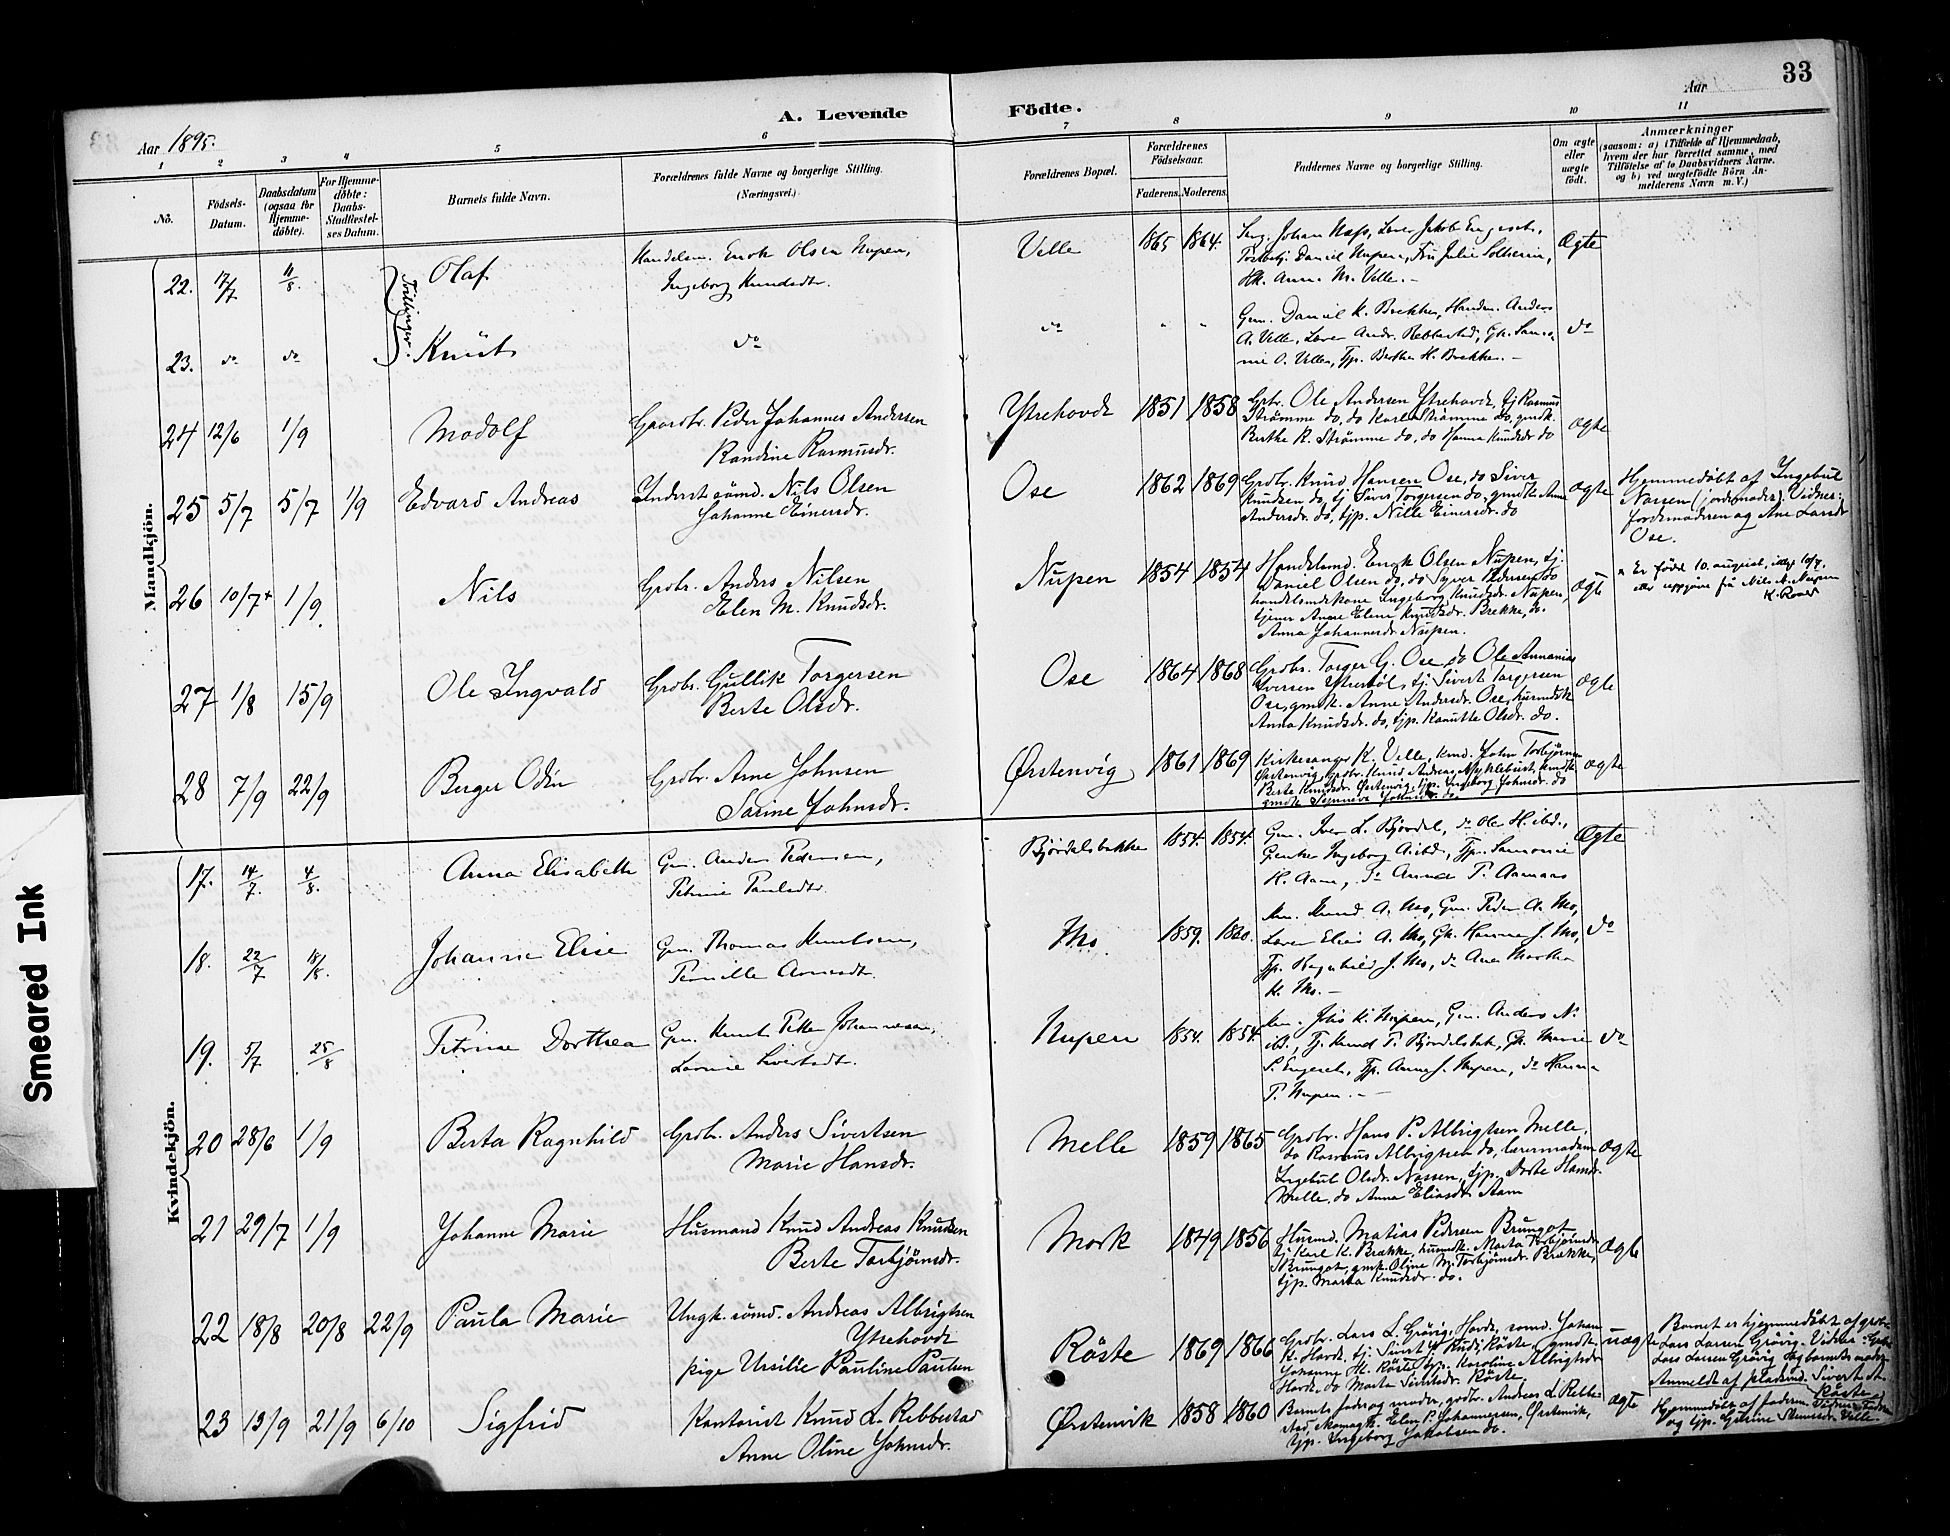 33
A. Levende Födte.
Aar 1895.
Aar
1 2 3 4 5 6 7 8 9 10 11
No.
Födsels-Datum.
Daabsdatum (ogsaa for Hjemme-döbte).
For Hjemme-döbte: Daabs-Stadfæstel-ses Datum.
Barnets fulde Navn.
Forældrenes fulde Navne og borgerlige Stilling.
(Næringsvei.)
Forældrenes Bopæl.
Forældrenes Födselsaar.
Faderens. Moderens.
Faddernes Navne og borgerlige Stilling.
Om ægte eller uægte födt.
Anmærkninger
(saasom: a) i Tilfælde af Hjemmedaab,
hvem der har forrettet samme, med
Tilföielse af to Daabsvidners Navne.
og b) ved uægtefödte Börn An-
melderens Navn m. V.)
Mandkjön.
22. 17/7 11/8. Tvillinger. Olaf
Handelsm. Enok Olsen Nupen,
Ingeborg Knudsdt.
Velle 1865 1864.
Johan Næss, Jakob Engeset,
Daniel Nupen, Fru Julie Solheim,
Anna M. Velle. –
Ægte
23. do do Knut do do " "
Gm. Daniel K. Brekke, Handm. Anders
A. Velle, Andr. Rebbestad,
O. Velle, Tjp. Berthe H. Brekke. –
do
24 12/6 1/9 Modolf
Gaardbr. Peder Johannes Andersen
Randine Rasmusdr.
Ytrehovde 1851 1858
Grbr. Ole Andersen Ytrehovde, tj Rasmus
Strømme do, do Karl Strømme do, gmdk.
Berthe R. Strømme do, do Hanna Knudsdr do
ægte
25 5/7 5/7 1/9 Edvard Andreas
Inderst sömd. Nils Olsen
Johanne Einersdr.
Ose 1862 1869
Grdbr. Knud Hansen Ose, do Siver
Knudsen do, tj Sivert Torgersen do, gmdk Anne
Andersdr. do, tjp. Nille Einersdr. do
ægte
Hjemmedöbt af Ingebul
Nassen (jordemoder). Vidner:
Jordemoderen og Ane Larsdr
Ose.
26 10/7+ 1/9 Nils
Grdbr. Anders Nilsen
Elen M. Knudsdr.
Nupen 1854 1854
Handelsmd. Enok Olsen Nupen, tj.
Daniel Olsen do, do Syver Pedersen do
handelsmdskone Ingeborg Knudsdr. Nupen,
tjener Anne Eline Knudsdr. Brekke, do.
Anna Johannesdr Nupen.
ægte
× Er född 10. august, ikkje 10/7,
etter uppgjeve frå Nils A. Nupen
27 1/8 15/9 Ole Ingvald
Grdbr. Gullik Torgersen
Berte Olsdr.
Ose 1864 1868
Grdbr. Torger G. Ose, do Ole Annanias
Iversen Ytrestöl, tj. Sivert Torgersen
Ose, gmdk. Anne Andersdr. Ose, husmdsk
Anna Knudsdr. do, tjp. Knutte Olsdr. do.
ægte
28 7/9 22/9 Berger Odin
Grdbr. Arne Johnsen
Sarine Johnsdr.
Ørstenvig 1861 1869
Kirkesanger K. Velle, kmd. John Torbjörnsen
Ørstenvig, Grdbr. Knud Andreas Myklebust, kmdk.
Berte Knudsdr. Ørstenvig, tjp. Ingeborg Johnsdr. do
gmdk Synneve Johnsdr. do.
ægte
Kvindekjön.
17. 14/7. 4/8. Anna Elisabeth
Gm. Anders Pedersen,
Petrine Paulsdtr.
Björdalsbakke 1854. 1854.
Gm. Iver L. Björdal, do Ole H. ibd.,
Ingeborg A. ibd., Tjp.
H. Aam, do Anna P. Aamaas
Ægte
18. 22/7 18/8. Johanne Elise
Gm. Thomas Knutsen,
Pernille Arnesdt.
Mo. 1859. 1860.
Knud A. Mo, Gm. Peder A. Mo,
Elias A. Mo, Gk. Hanna J. Mo,
Tjp. Ragnhild J. Mo, do Ane Martha
K. Mo. –
do
19. 5/7 25/8 Petrine Dorthea
Gm. Knut Peter Johannesen,
Nupen 1854. 1854.
K. Nupen, Gm. Anders N.
ibd., Tj. Knud P. Björdalsbak, Gk. Marie
S. Engeset, Tjp. Anna J. Nupen, do Hanna
P. Nupen. –
do
20 28/6 1/9 Berta Ragnhild
Grdbr. Anders Sivertsen
Marie Hansdr.
Melle 1859 1865
Grdbr. Hans P. Albrigtsen Melle,
do Rasmus Albrigtsen do, Jordmoderen
Ingebul Olsdr. Nassen, tjp. Dorte Hansdr.
Melle, do Anna Eliasdr. Aam
ægte
21 29/7 1/9 Johanne Marie
Husmand Knud Andreas Knudsen
Berte Torbjörnsdr.
Mork 1849 1856
Husmd. Matias Pedersen Brungot
tj Karl K. Brække, husmdk. Marta Torbjörnsdr
Brungot, gmk. Oline M. Torbjörnsdr. Brække,
tjp. Marta Knudsdr. do.
ægte
22 18/8 20/8 22/9 Paula Marie
Ungk. sömd. Andreas Albrigtsen
Ytrehovde
pige Ursilie Pauline Paulsen
Röste 1869 1866
Grdbr. Lars L. Grövig, Hovde, sömd. Johan
K. Hovde, tj. Sivert P. Röste, gmdk.
Johanne H. Röste, tjp. Karoline Albrigtsdr
Hovde, do Marta Sivertsdr. Röste.
uægte
Barnet er hjemmedöbt af grdbr.
Lars Larsen Grövig. Vidner: Grdbr.
Lars Larsen Grövig og barnets moder.
Anmeldt af pladsmd. Sivert A.
Röste
23 13/9 21/9 6/10 Sigfrid
Kantorist Knud L. Rebbestad
Anne Oline Johnsdr.
Ørstenvik 1858 1860
Barnets fader og moder, grdbr. Andreas L. Rebbe-
stad, Elen P. Johannessen, Ørstenvik,
tjp. Ingeborg Jakobsen do.
ægte
Hjemmedöbt af faderen. Vidner: Faderen
og tjp. Velle
Smeared Ink